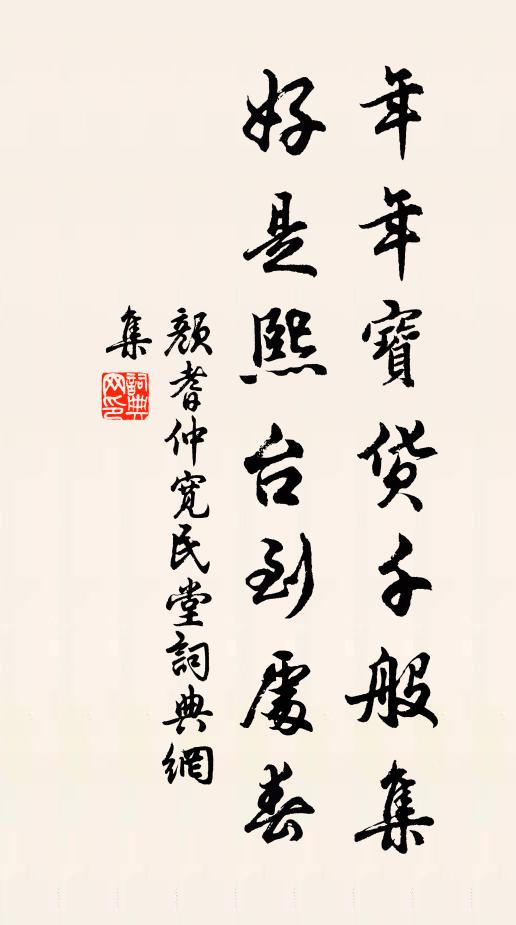 年年寶貨千般集
好是熙台到處春
顏耆仲寬民堂詞典網
集
詞典
网印